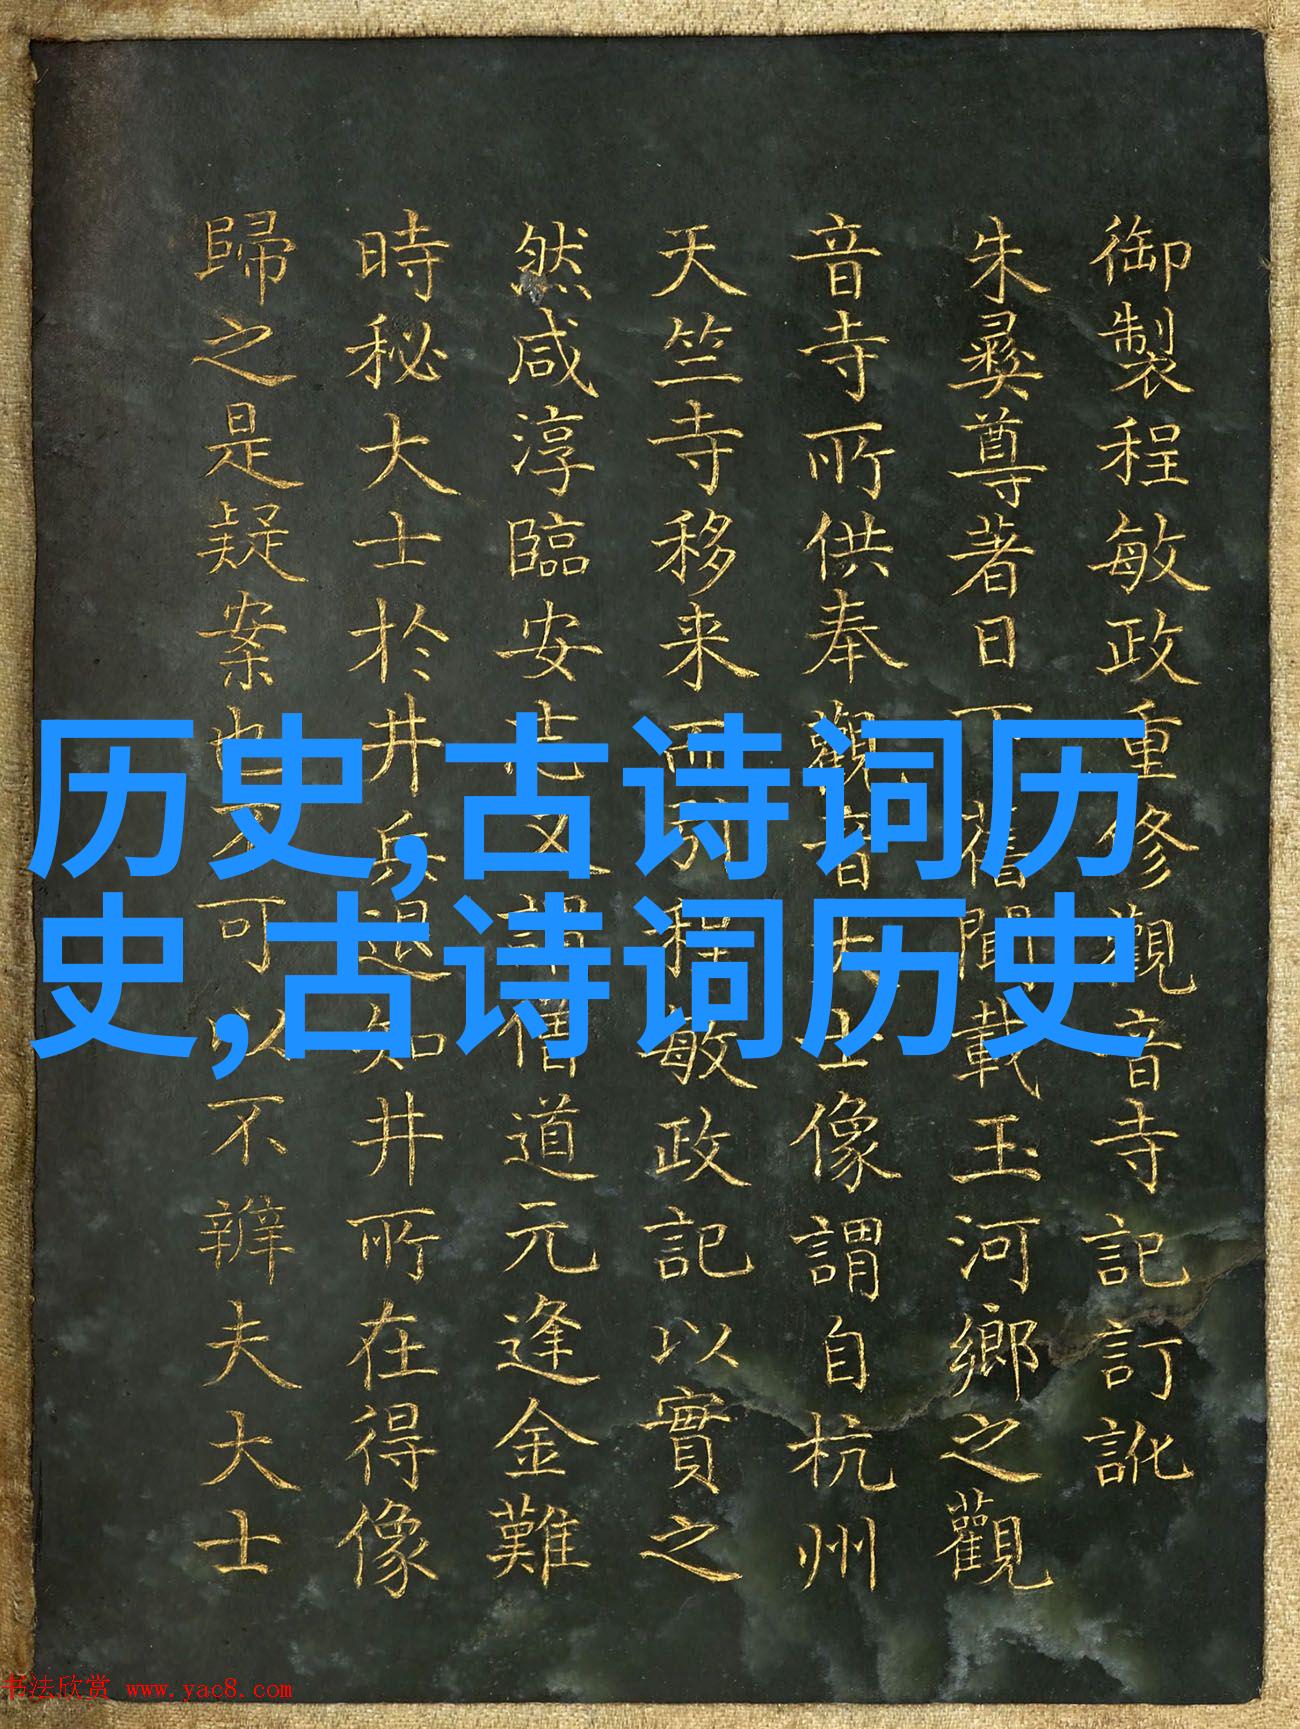 御製程敏政重修觀音寺記訂訛
朱彝尊著日下舊聞載玉河鄉之觀
音寺所供奉觀音大士像謂自杭州
天竺寺移来而引程敏政記以實之
然咸淳臨安志又僧道元逢金難
時秘大士於井兵退知井所在得像
歸之是疑案也不可以不辨夫大士
历史,古诗词历
史,古诗词历史
书法欣赏 www.yac8.com